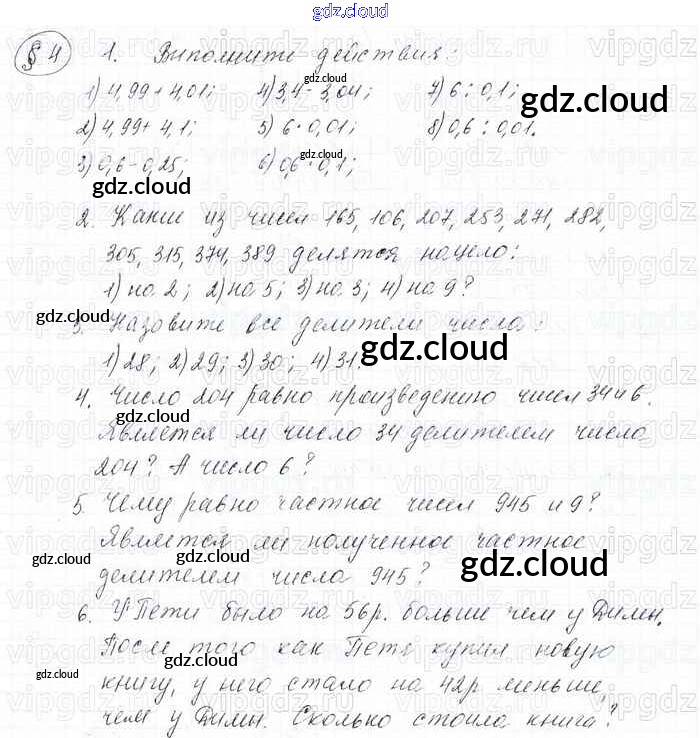 gdz.cloud
§ 4 1. Выполните действия:
1) 4,99 + 4,01; 4) 3,4 - 3,04; 7) 6 : 0,1;
2) 4,99 + 4,1; 5) 6 · 0,01; 8) 0,6 : 0,01.
3) 0,6 - 0,25; 6) 0,6 · 0,1;
2. Какие из чисел 165, 106, 207, 253, 271, 282,
305, 315, 374, 389 делятся нацело:
1) на 2; 2) на 5; 3) на 3; 4) на 9?
3. Назовите все делители числа:
1) 28; 2) 29; 3) 30; 4) 31.
4. Число 204 равно произведению чисел 34 и 6.
Является ли число 34 делителем числа
204? А число 6?
5. Чему равно частное чисел 945 и 9?
Является ли полученное частное
делителем числа 945?
6. У Пети было на 56 р. больше чем у Димы.
После того как Петя купил новую
книгу, у него стало на 42 р меньше,
чем у Димы. Сколько стоила книга?